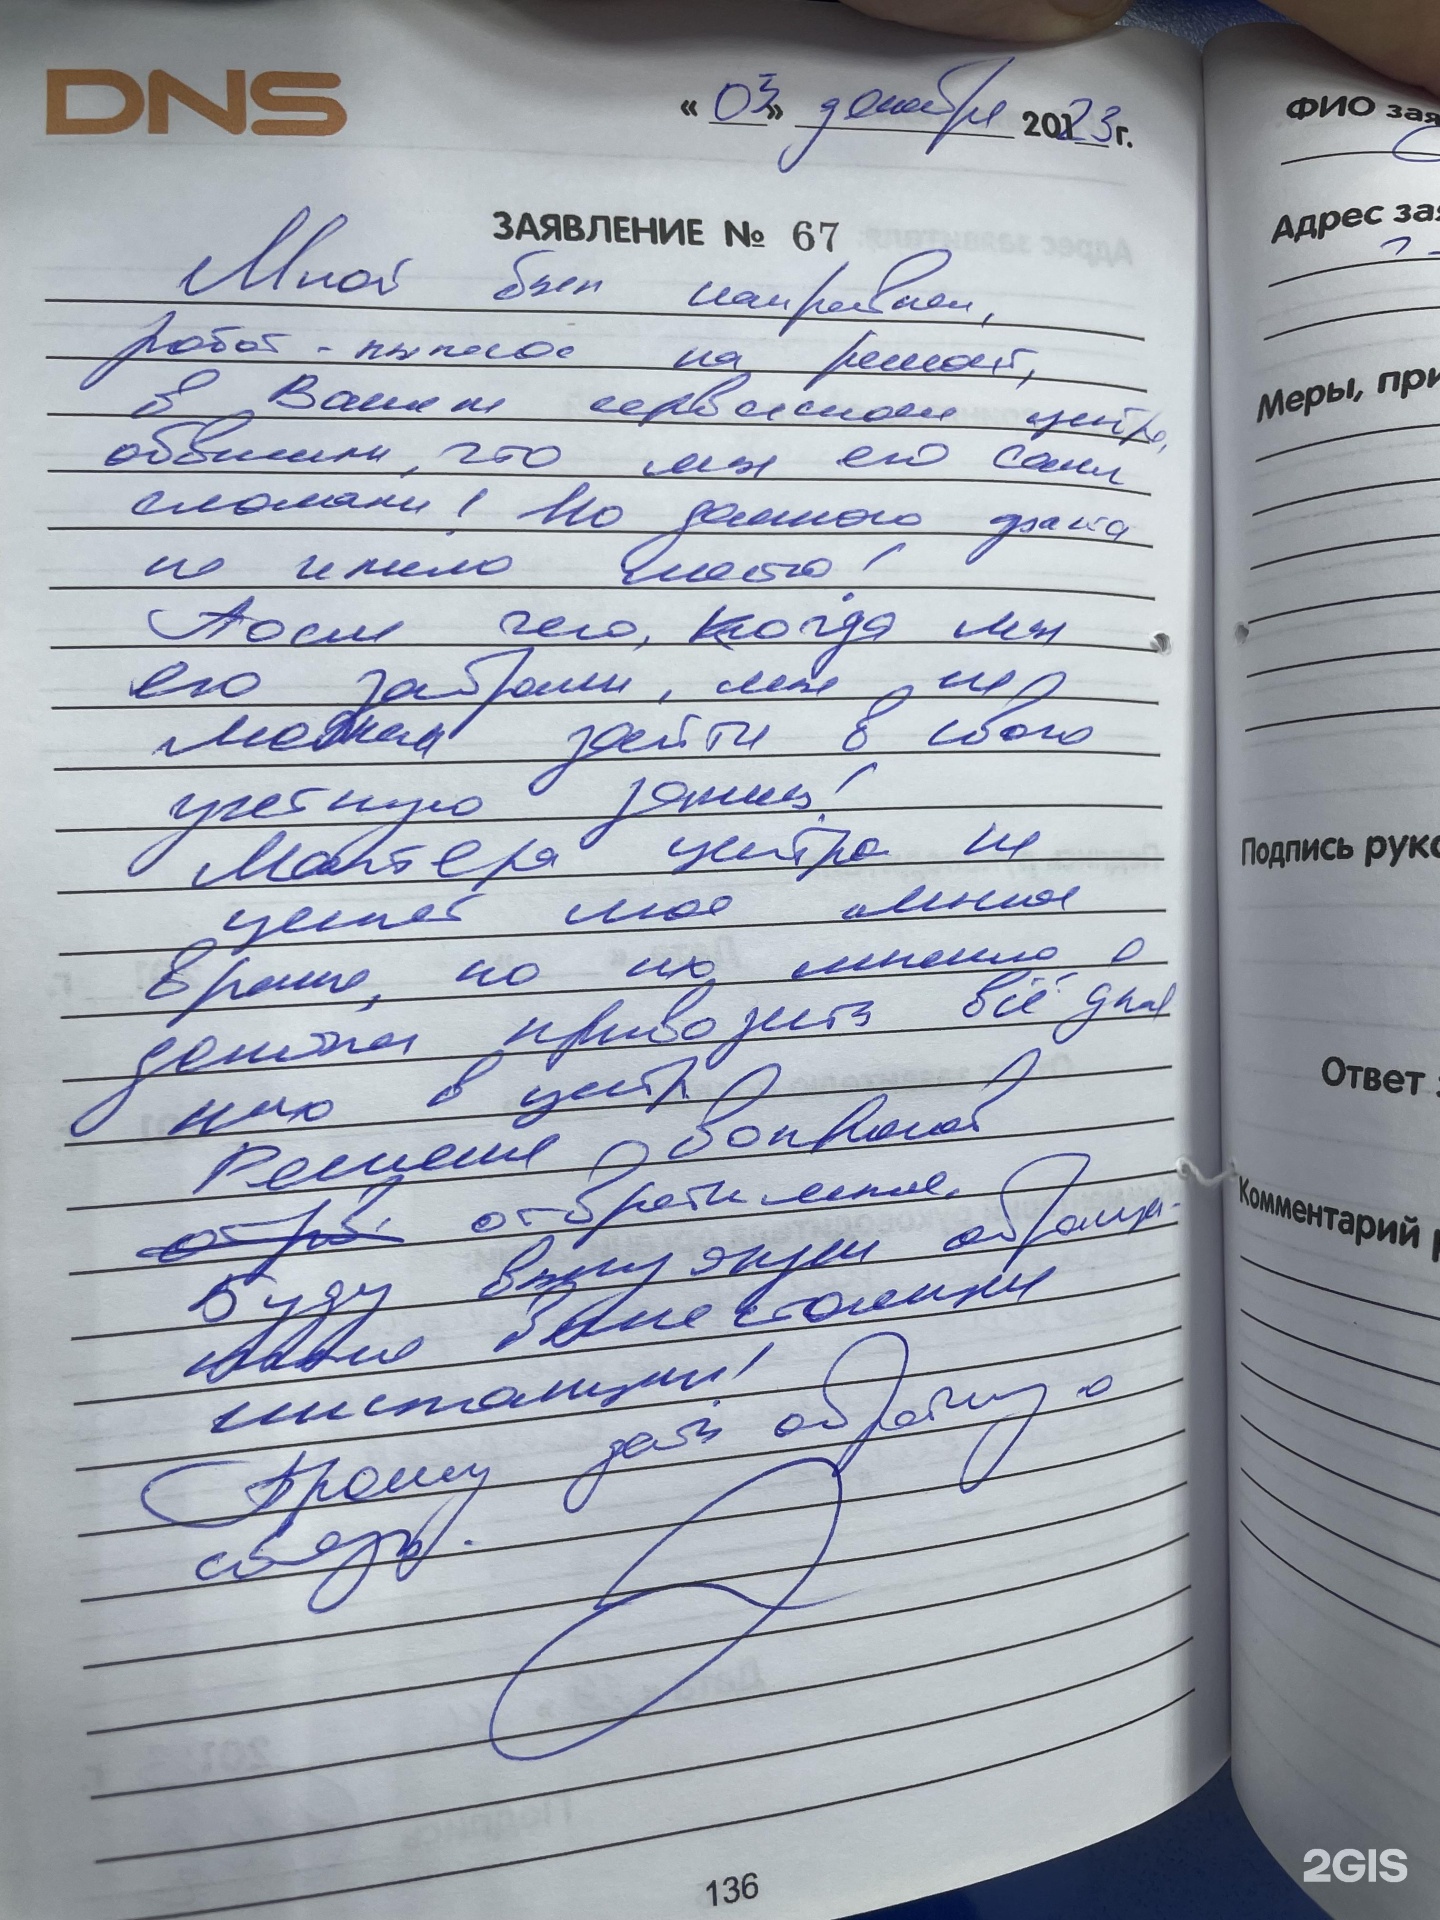 DNS
« 03 » декабря 2023 г.
ЗАЯВЛЕНИЕ № 67
Мной был направлен,
робот-пылесос на ремонт,
в Вашем сервисном центре,
обвинили, что мы его сами
сломали! Но данного факта
не имело место!
После чего, когда мы
его забрали, мы не
можем зайти в свою
учетную запись!
Мастера центра не
ценят мое личное
время, но по их мнению я
должен привозить всё для
них в центр
Решение вопросов
отвратительное.
Буду вынужден обращи-
в вышестоящии
инстанции!
Прошу дать обратную
связь.
136
ФИО зая
Адрес зая
Меры, при
Подпись руко
Ответ з
Комментарий р
2GIS